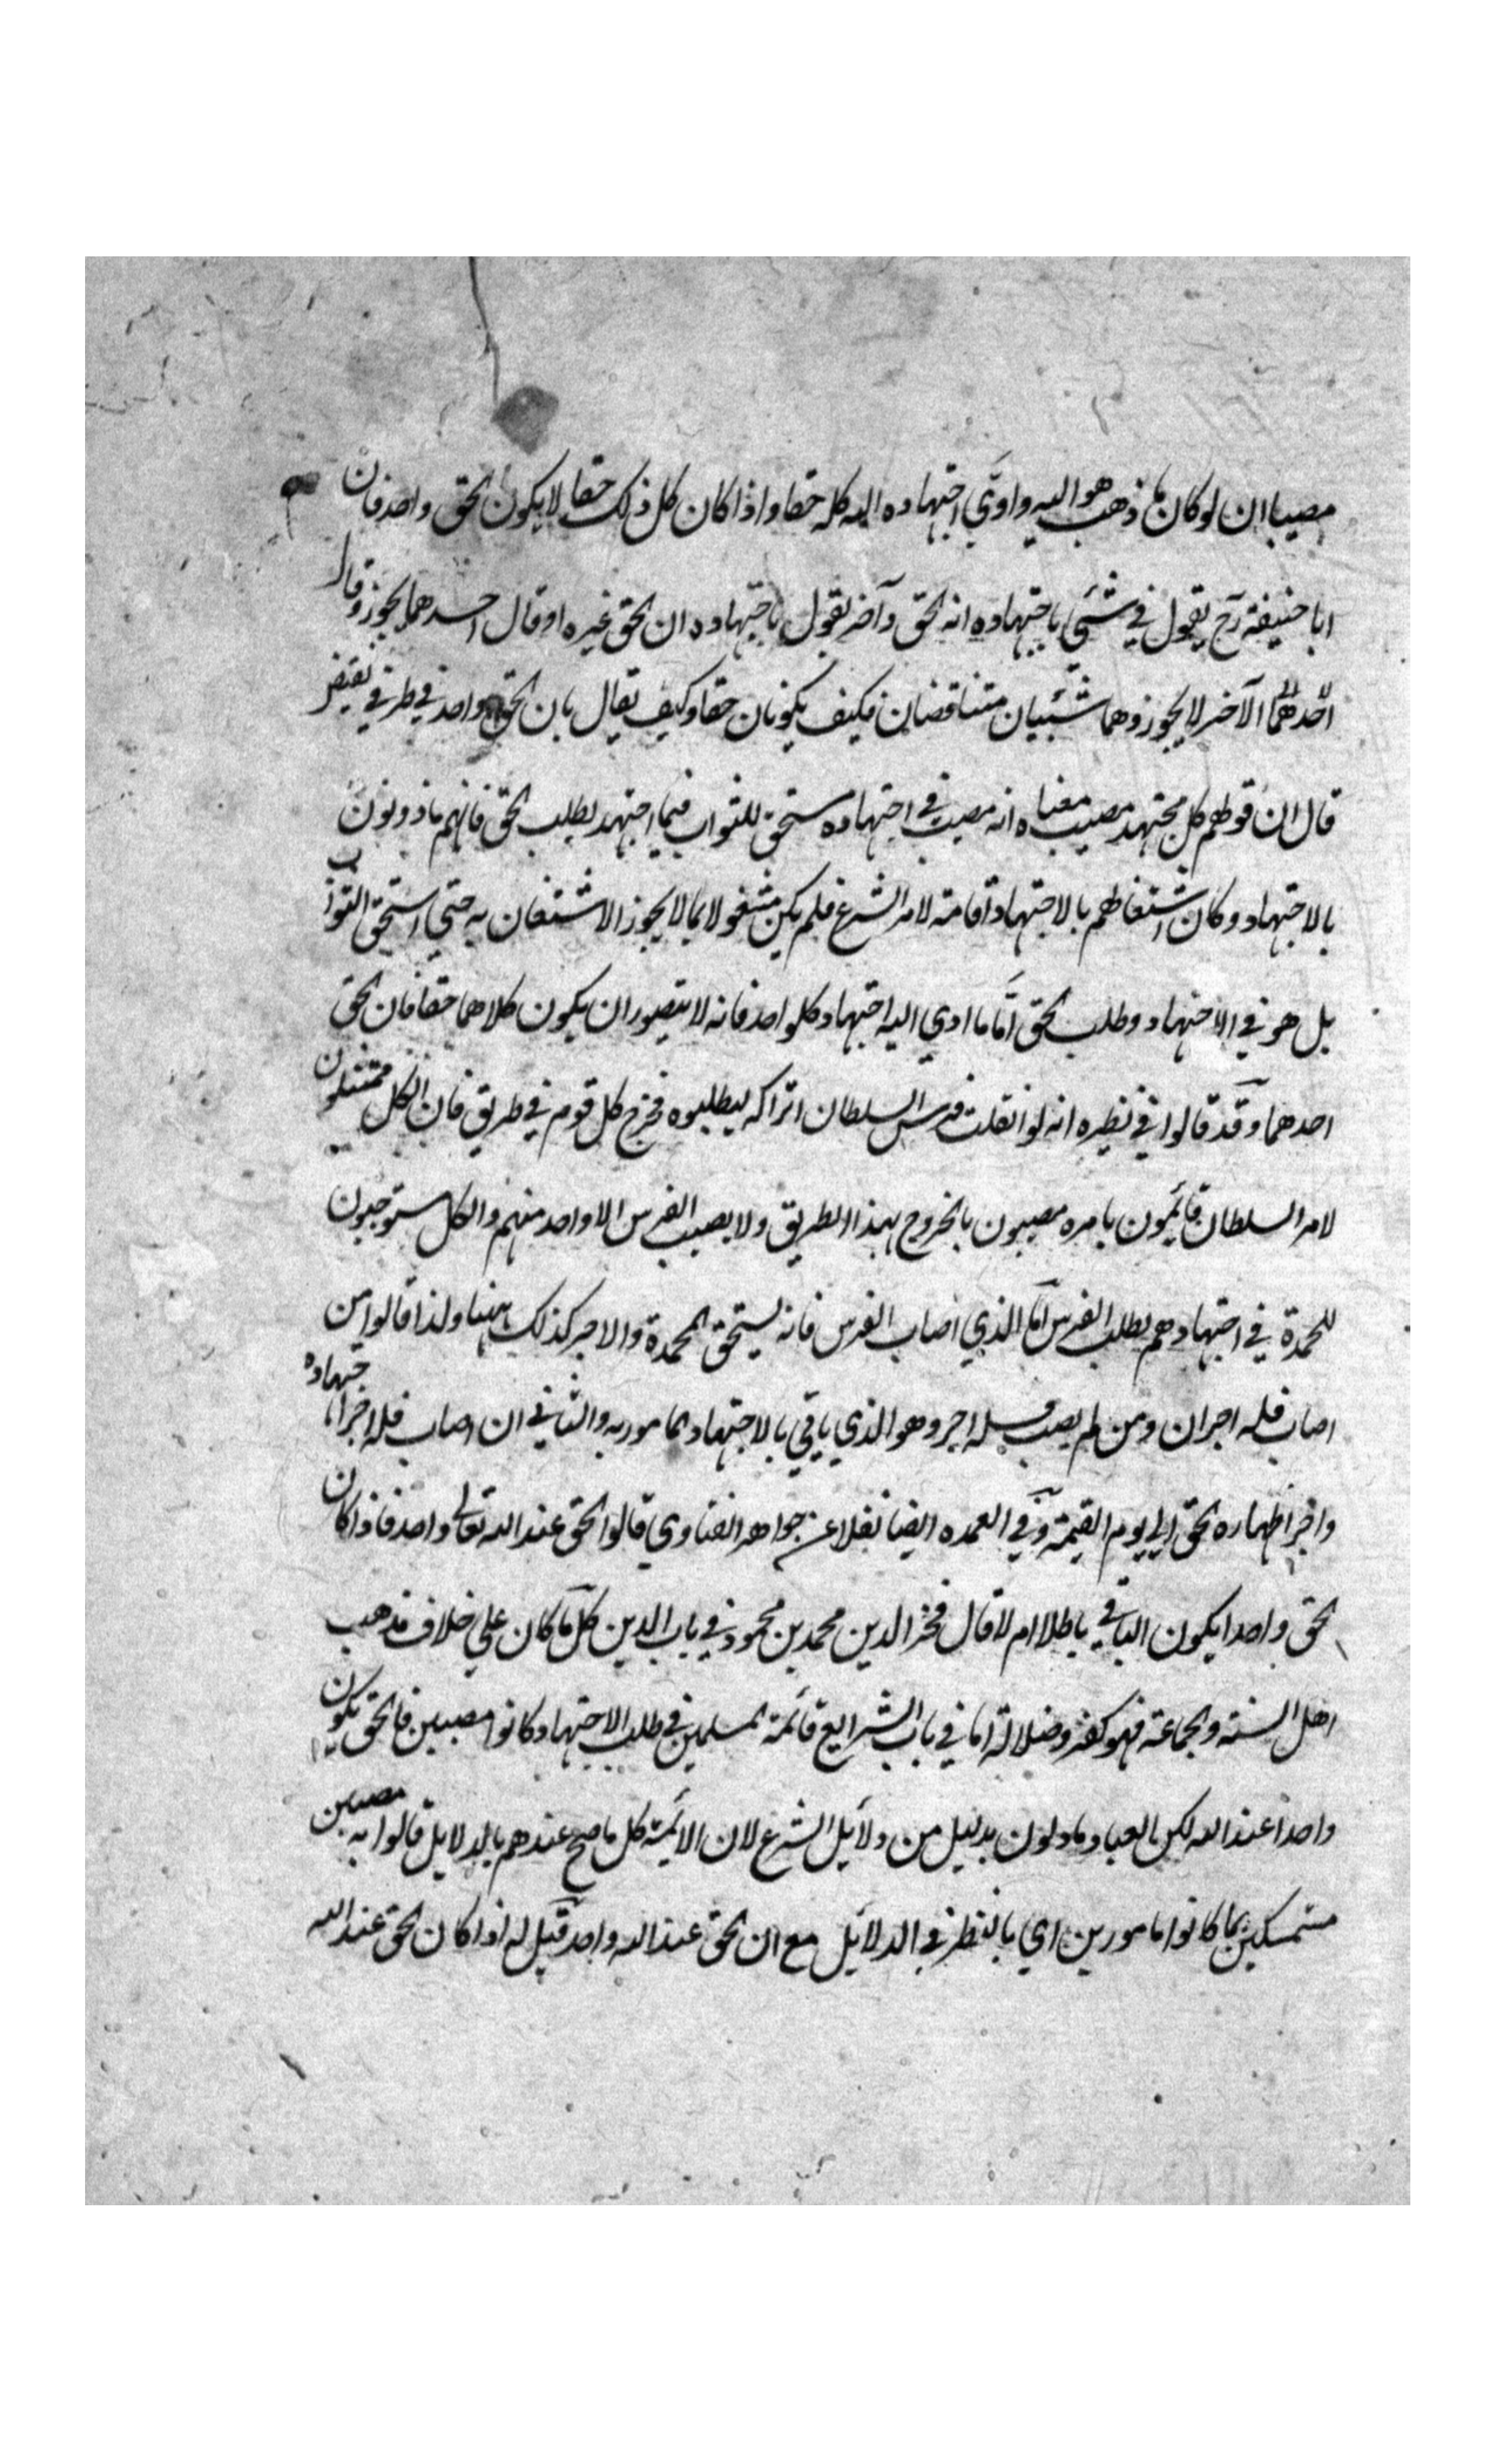 مصيبا ان لو كان ما ذهب هو اليه واوّي اجتهاده اليه كله حقا واذا كان كل ذلك حقا لا يكون الحق واحد فان
ابا حنيفة رح يقول في شئي باجتهاده انه الحق وآخر يقول باجتهاده ان الحق غيره او قال احدهما يجوز وقال
احدهما الآخر لا يجوز وهما شيئيان متناقضان فكيف يكونان حقا وكيف يقال بان الحق واحد في طرفي نقيض
قال ان قولهم كل مجتهد مصيب معناه انه مصيب في اجتهاده مستحق للثواب فيما اجتهد لطلب الحق فانهم ماذونون
بالاجتهاد وكان اشتغالهم بالاجتهاد اقامة لامر الشرع فلم يكن مشغولا بما لا يجوز الاشتغال به حتي استحق الثواب
بل هو في الاجتهاد وطلب الحق امّا ما ادي اليه اجتهاد كلواحد فانه لا يتصور ان يكون كلاهما حقا فان الحق
احدهما وقد قالوا في نظيره انه لو انفلت فرس السلطان اتراكه ليطلبوه فخرج كل قوم في طريق فان الكل ممتثلون
لامر السلطان قائمون بامره مصيبون بالخروج بهذا الطريق ولا يصيب الفرس الا واحد منهم والكل مستوجبون
للمحمدة في اجتهادهم بطلب الفرس اما الذي اصاب الفرس فانه يستحق المحمدة والاجر كذلك ههنا ولذا قالوا من
اصاب فله اجران ومن لم يصب فله اجر وهو الذي ياتي بالاجتهاد المامور به والثاني ان اصاب فله اجر اجتهاده
واجر اظهاره الحق الي يوم القيمة وفي العمده ايضا نقلا عن جواهر الفتاوي قالوا الحق عند الله تعالي واحد فاذا كان
الحق واحدا يكون الباقي باطلا ام لا قال فخر الدين محمد بن محمود في باب الدين كل ما كان علي خلاف مذهب
اهل السنة والجماعة فهو كفر وضلالة اما في باب الشرايع فائمة المسلمين في طلب الاجتهاد كانوا مصيبين فالحق يكون
واحدا عند الله لكن العباد مادلون بدليل من دلائل الشرع لان الائمة كل ما صح عندهم بالدلايل قالوا به مصيبين
متمسكين بما كانوا مامورين اي بالنظر في الدلائل مع ان الحق عند الله واحد قيل له اذا كان الحق عند الله